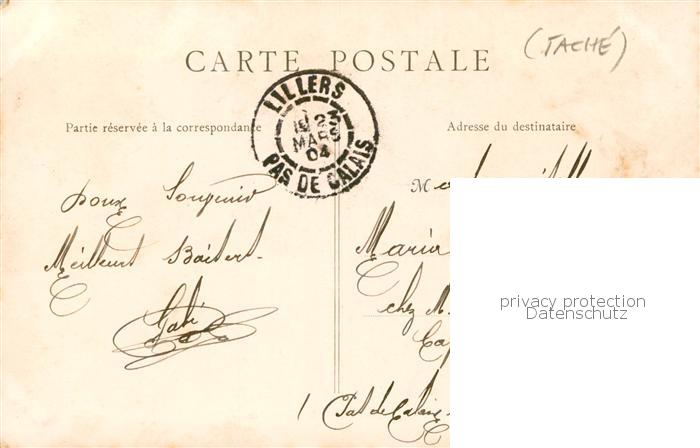 (TACHÉ)
CARTE POSTALE
LILLERS
23
MARS
04
PAS DE CALAIS
Partie réservée à la correspondance
Adresse du destinataire
doux Souvenir
Meilleurs Baisers
Gabi
M
Maria
chez M
privacy protection
Datenschutz
1 Pas de Calais